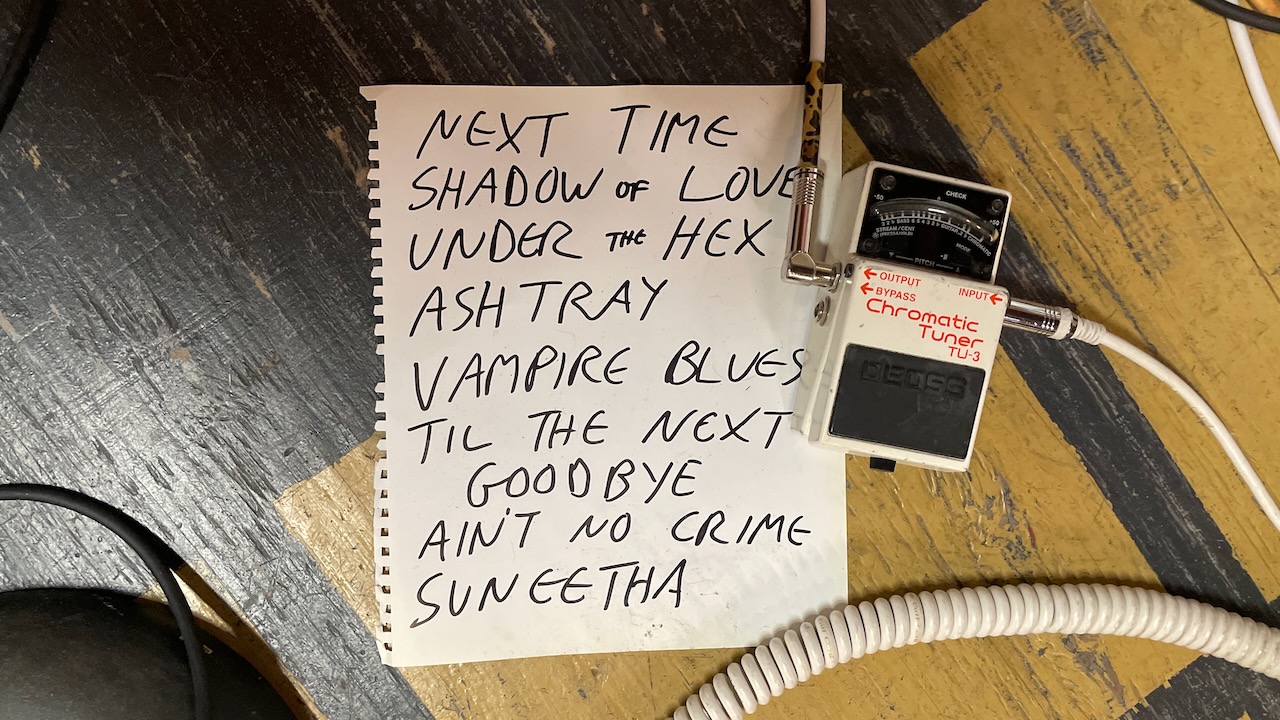 NEXT TIME
SHADOW OF LOVE
UNDER THE HEX
ASHTRAY
VAMPIRE BLUES
TIL THE NEXT
GOODBYE
AIN'T NO CRIME
SUNEETHA
CHECK
-50
+50
STREAM/CENT
BASS
GUITAR
CHROMATIC
MODE
PITCH
OUTPUT
BYPASS
INPUT
Chromatic
Tuner
TU-3
BOSS